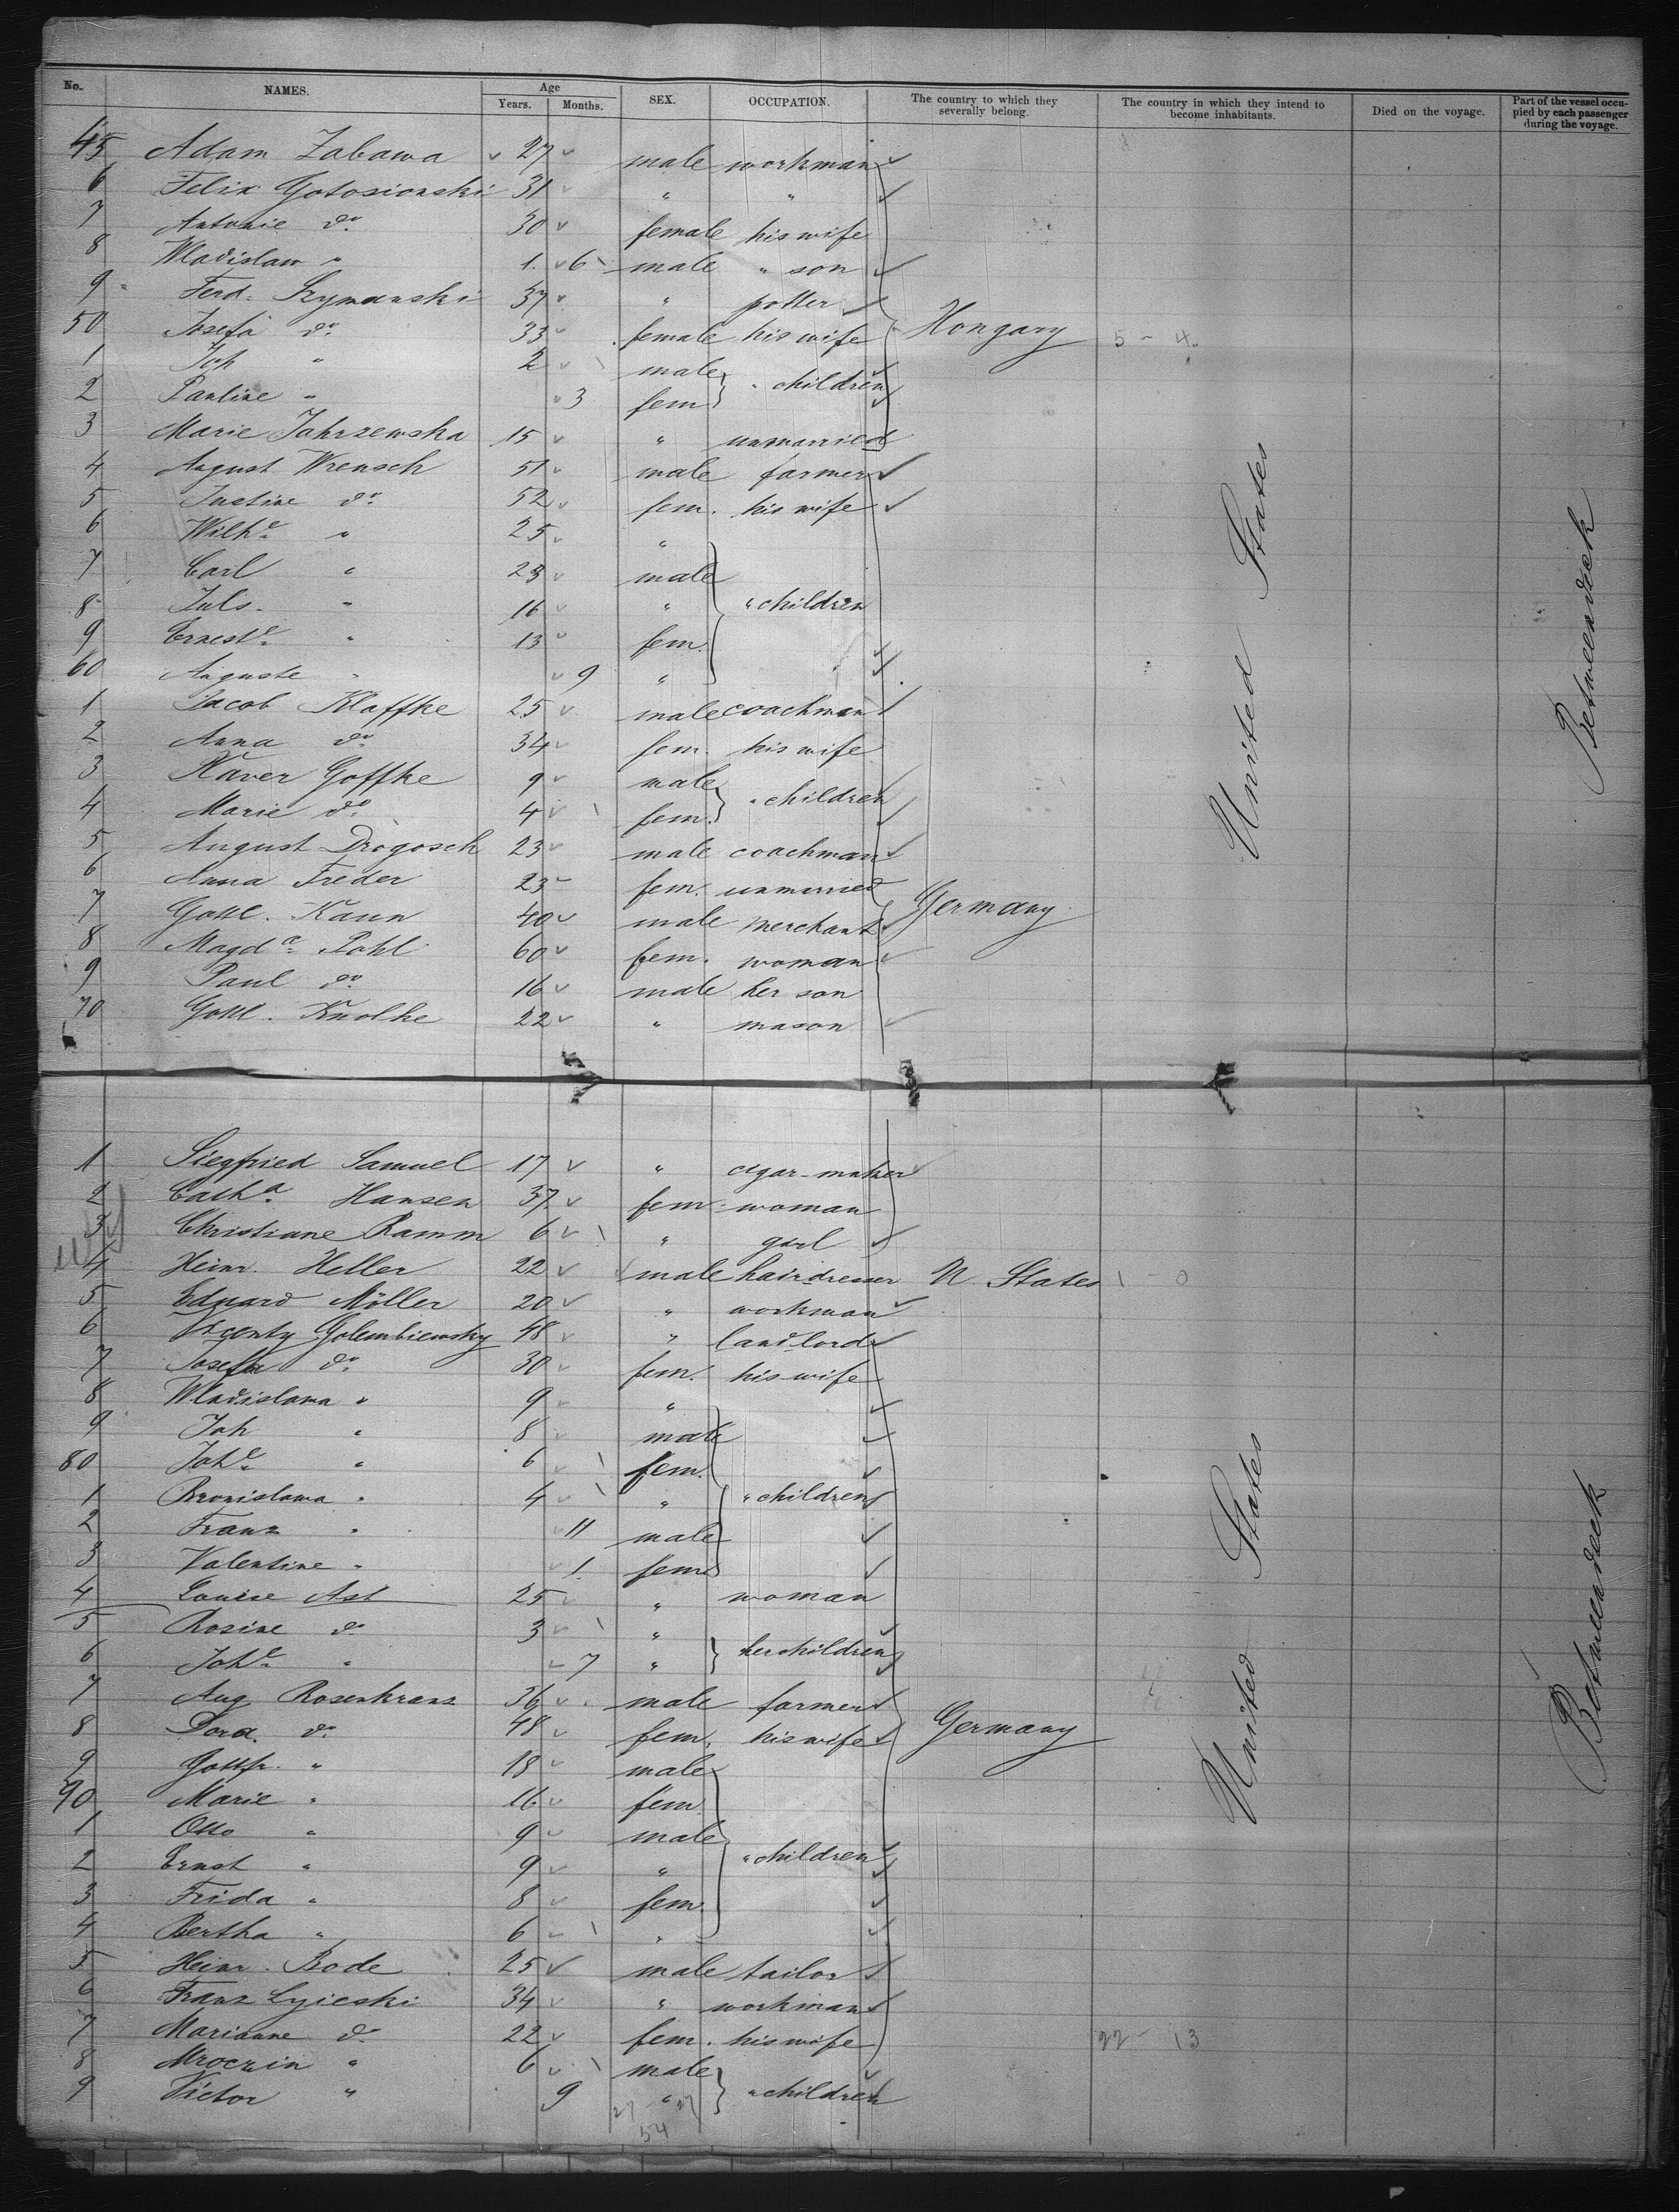 No. NAMES. Age Years. Months. SEX. OCCUPATION. The country to which they severally belong. The country in which they intend to become inhabitants. Died on the voyage. Part of the vessel occupied by each passenger during the voyage.
45 Adam Zabawa 27 male workman
6 Felix Gotosionski 31 " "
7 Antonie do. 30 female his wife
8 Wladislaw " 1. 6 male " son
9 Ferd. Szymanski 37 " potter
50 Josefa do. 33 female his wife Hongary 5 - 4
1 Joh " 2 male
2 Pauline " 3 fem " children
3 Marie Jahrzewska 15 " unmarried
4 August Wrensch 51 male farmer
5 Justine do. 52 fem. his wife
6 Wilhe. " 25 "
7 Carl " 23 male
8 Juls. " 16 " " children
9 Erneste. " 13 fem.
60 Auguste " 9 "
1 Jacob Klaffke 25 male coachman
2 Anna do. 34 fem. his wife
3 Xaver Goffke 9 male
4 Marie do. 4 fem. " children
5 August Drogosch 23 male coachman
6 Anna Freder 23 fem. unmarried
7 Gottl. Kaun 40 male merchant Germany
8 Magda. Pohl 60 fem. woman
9 Paul do. 16 male her son
70 Gottl. Knolke 22 " mason
United States
Betweendeck
1 Siegfried Samuel 17 " cigar-maker
2 Catha. Hansen 37 fem. woman
3 Christiane Ramm 6 " girl
4 Heinr. Heller 22 male hairdresser U. States 1 - 0
5 Eduard Möller 20 " workman
6 Vicenty Golembiewsky 48 " landlord
7 Josefa do. 30 fem. his wife
8 Wladislawa " 9 "
9 Joh " 8 male
80 Johe. " 6 fem.
1 Bronislawa " 4 " " children
2 Franz " 11 male
3 Valentine " 1. fem.
4 Louise Ast 25 " woman
5 Rosine do 3 "
6 Johe. " 7 " her children
7 Aug. Rosenkranz 36 male farmer
8 Dora. do. 48 fem. his wife Germany
9 Gottfr. " 18 male
90 Marie " 16 fem
1 Otto " 9 male
2 Ernst " 9 " " children
3 Frida " 8 fem.
4 Bertha " 6 "
5 Heinr. Bode 25 male tailor
6 Franz Lyieski 34 " workman
7 Marianne do 22 fem. his wife 22 - 13
8 Mroczin " 6 male
9 Victor " 9 " " children
27 - 27
54
United States
Betweendeck